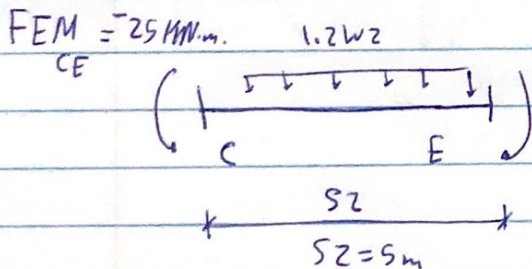 FEM = -25 KN.m. 1.2W2
CE
C E
S2
S2 = 5m